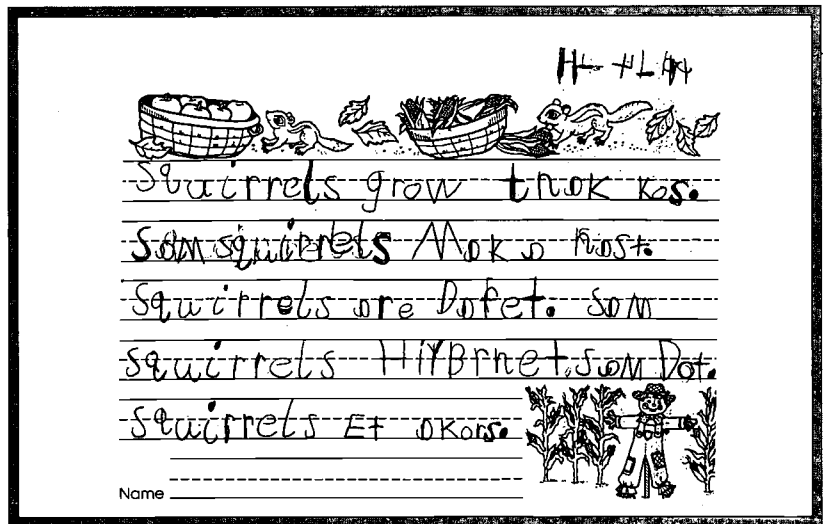 Squirrels grow thok kos.
Som squirrels Mok a nast.
Squirrels are Dofet. Som
squirrels HiYBrnet. Som Dot.
Squirrels Et akors.
Name